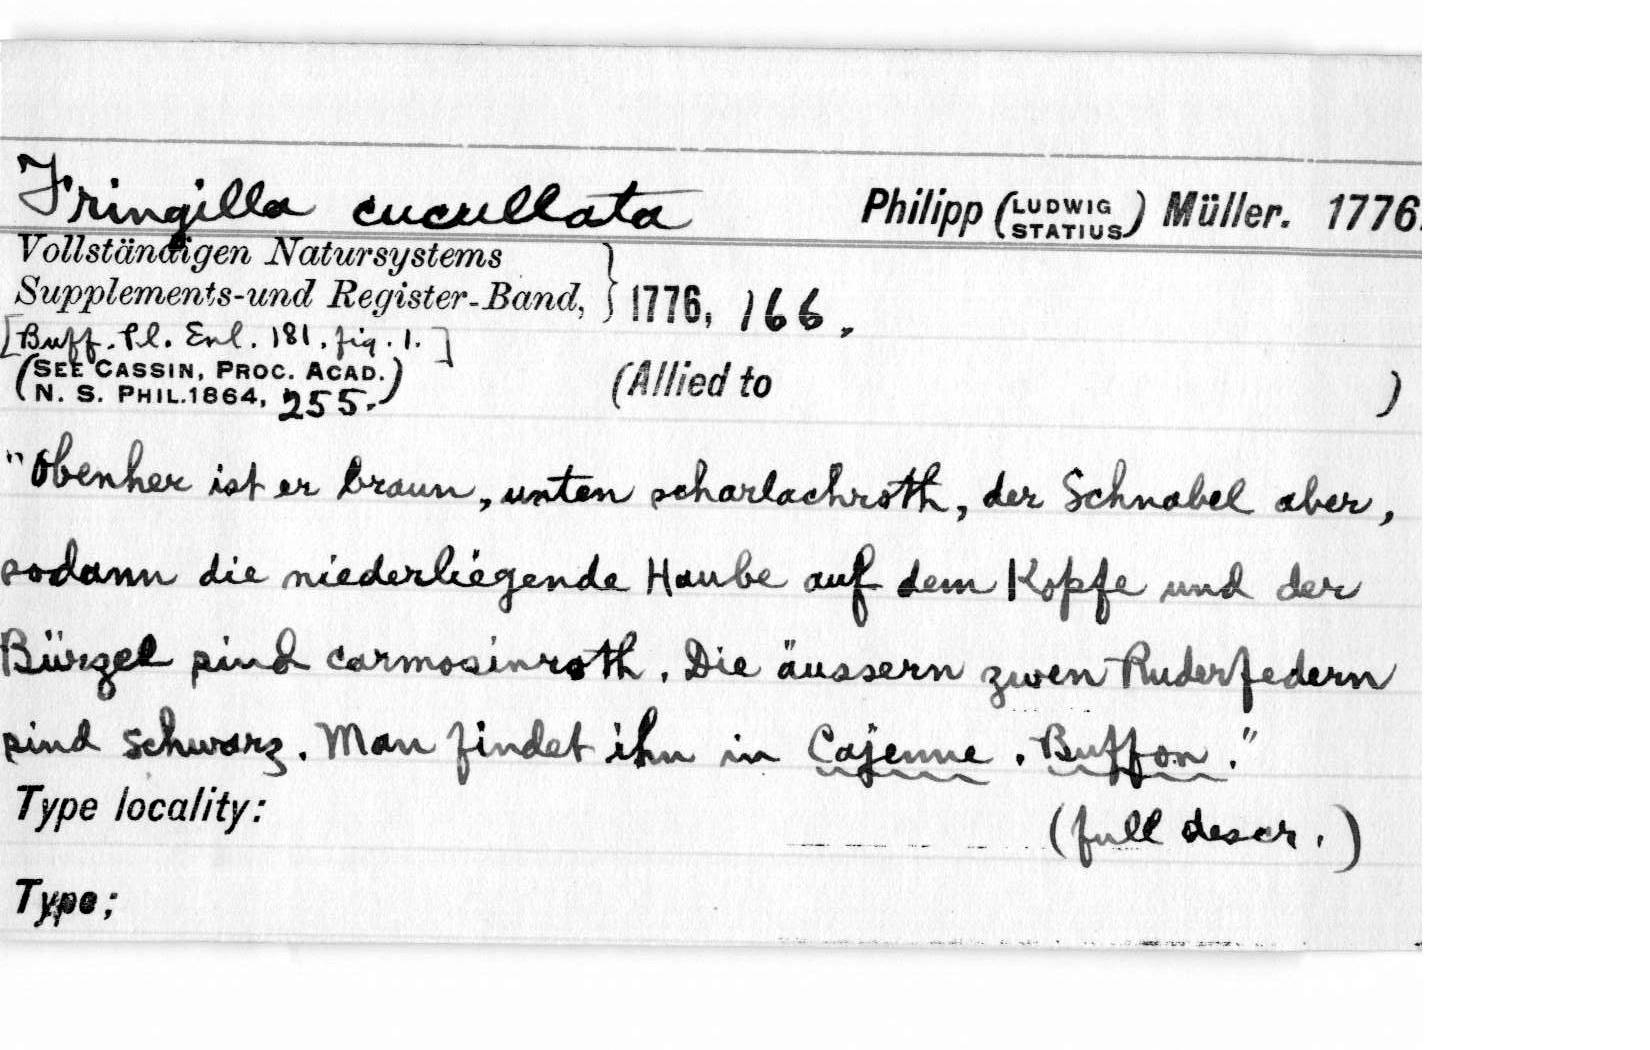 Fringilla cucullata Philipp (LUDWIG STATIUS) Müller. 1776.
Vollständigen Natursystems
Supplements-und Register-Band, } 1776, 166.
[Buff. Pl. Enl. 181. fig. 1.]
(SEE CASSIN, PROC. ACAD.
N. S. PHIL. 1864, 255.) (Allied to )
"Obenher ist er braun, unten scharlachroth, der Schnabel aber,
sodann die niederliegende Haube auf dem Kopfe und der
Bürzel sind carmosinroth. Die äussern zwen Ruderfedern
sind schwarz. Man findet ihn in Cajenne. Buffon."
Type locality:
(full descr.)
Type;